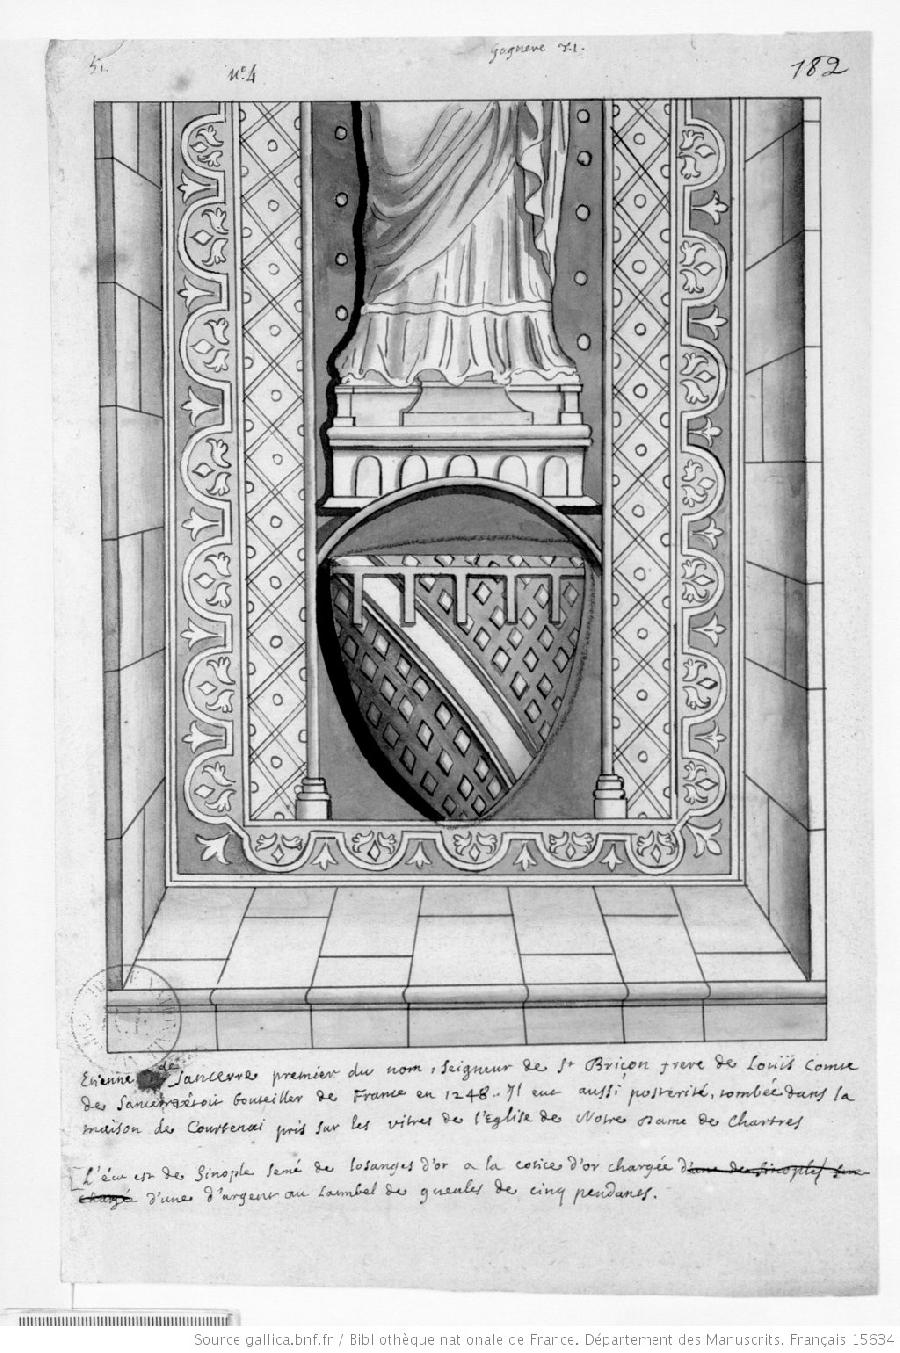 51.
Nº 4
Gagneve
182
Etienne de Sancerre premier du nom, Seigneur de St Briçon frere de Louïs Comte
de Sancerre étoit bouteiller de France en 1248. Il eut aussi posterité, tombée dans la
maison de Courtenai pris sur les vitres de l'Eglise de Notre Dame de Chartres
L'écu est de Sinople semé de losanges d'or a la cotice d'or chargée d'une de sinople
chargé d'une d'argent au Lambel de gueules de cinq pendants.
Source gallica.bnf.fr / Bibliothèque nationale de France. Département des Manuscrits. Français 15634